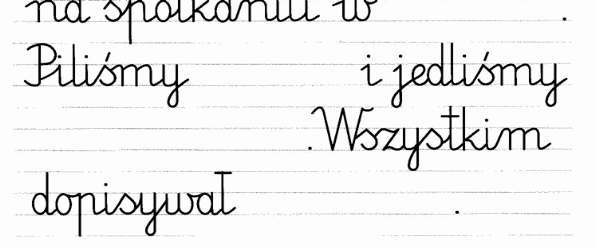 na spotkaniu w .
Piliśmy i jedliśmy
. Wszystkim
dopisywał .